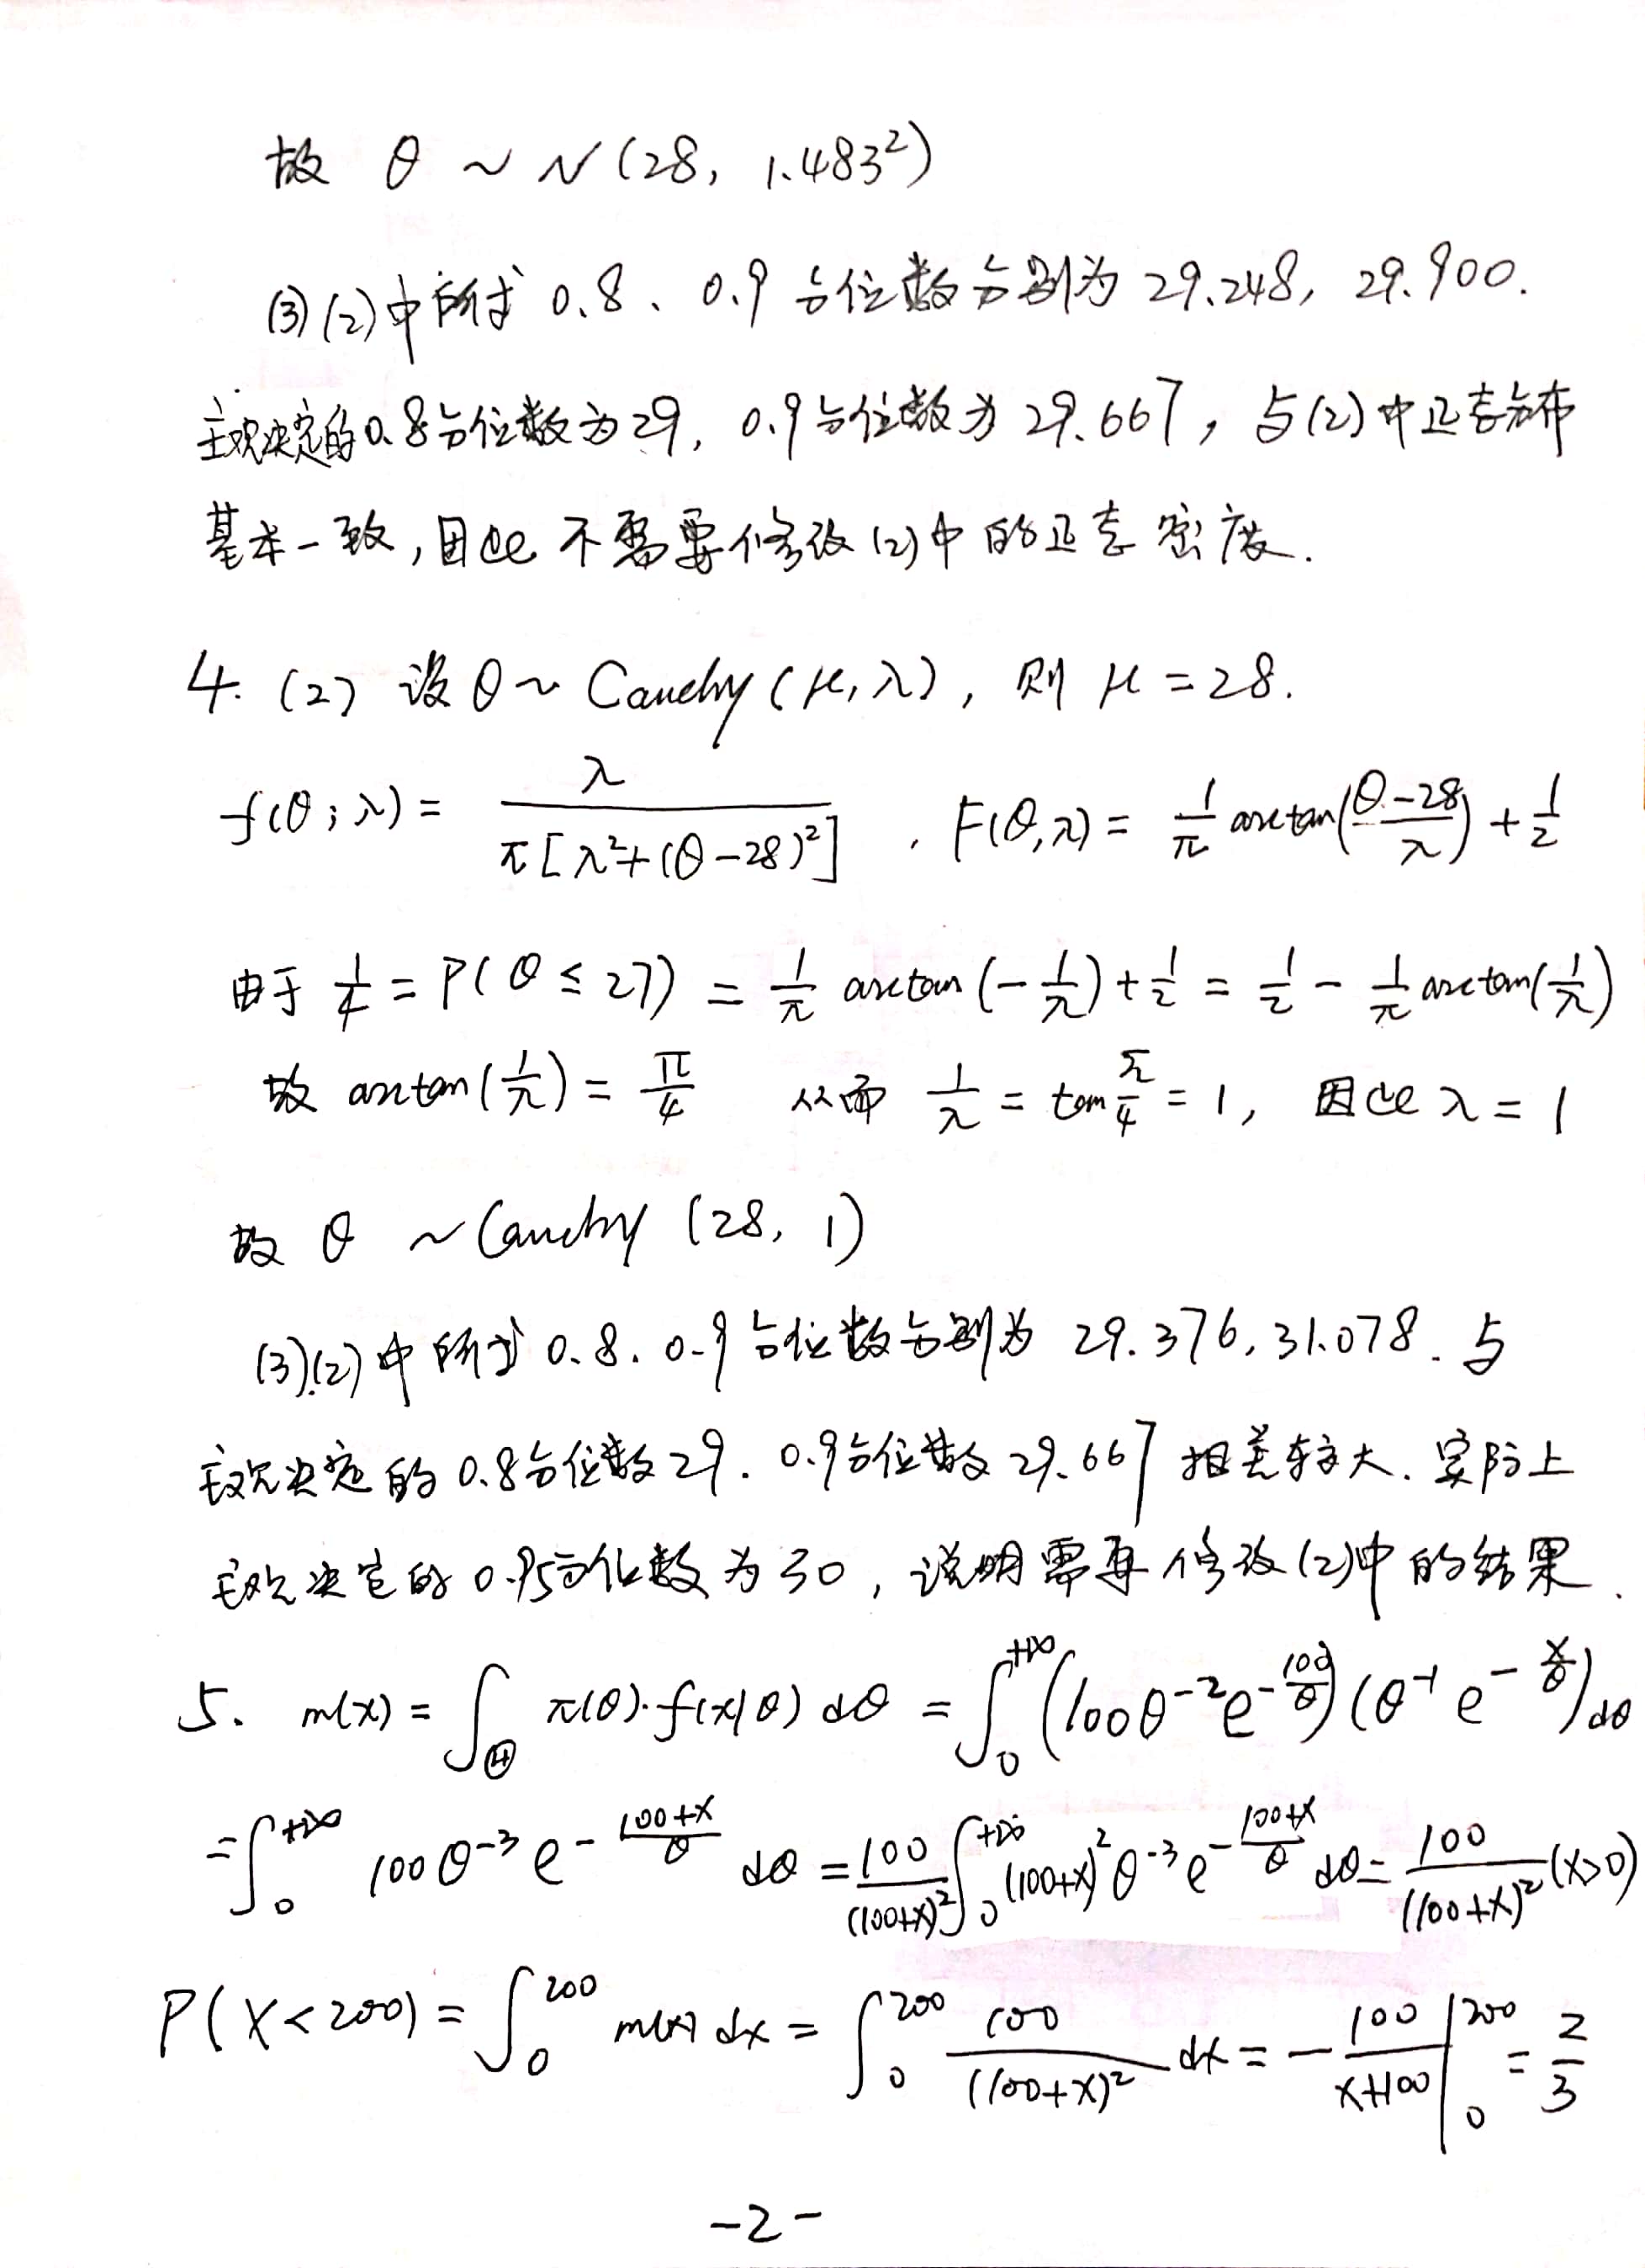 故 θ ~ N(28, 1.483²)
(3) (2)中所求 0.8、0.9 分位数分别为 29.248, 29.900.
主观决定的0.8分位数为29, 0.9分位数为 29.667, 与(2)中正态分布
基本一致, 因此 不需要修改(2)中的正态密度.
4. (2) 设 θ ~ Cauchy (μ, λ), 则 μ = 28.
f(θ; λ) = λ / π[λ²+(θ-28)²] , F(θ, λ) = 1/π arctan((θ-28)/λ) + 1/2
由于 1/4 = P(θ ≤ 27) = 1/π arctan(-1/λ) + 1/2 = 1/2 - 1/π arctan(1/λ)
故 arctan(1/λ) = π/4 从而 1/λ = tan π/4 = 1, 因此 λ = 1
故 θ ~ Cauchy (28, 1)
(3).(2)中所求 0.8. 0.9分位数分别为 29.376, 31.078. 与
主观决定的 0.8分位数29. 0.9分位数 29.667 相差较大. 实际上
主观决定的 0.95分位数为 30, 说明需要修改(2)中的结果.
5. m(x) = ∫_Θ π(θ)·f(x|θ) dθ = ∫_0^{+∞} (100θ^{-2} e^{-100/θ}) (θ^{-1} e^{-x/θ}) dθ
= ∫_0^{+∞} 100 θ^{-3} e^{-(100+x)/θ} dθ = 100/(100+x)² ∫_0^{+∞} (100+x)² θ^{-3} e^{-(100+x)/θ} dθ = 100/(100+x)² (x>0)
P(X < 200) = ∫_0^{200} m(x) dx = ∫_0^{200} 100/(100+x)² dx = - 100/(x+100) |_0^{200} = 2/3
-2-